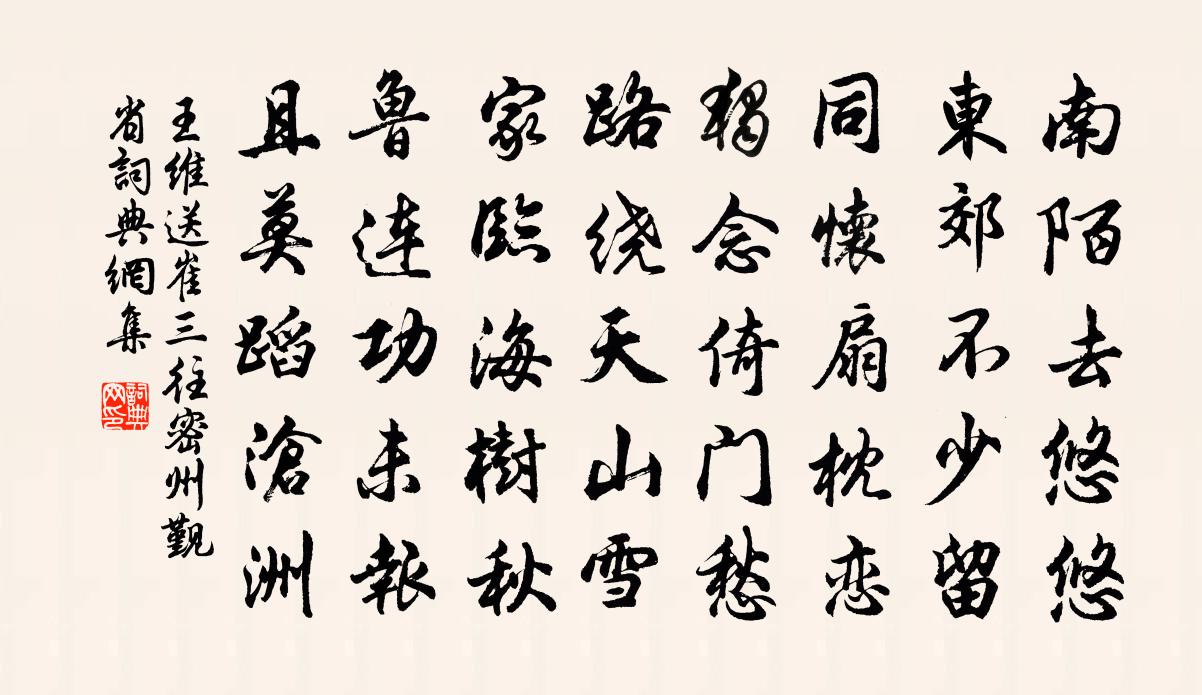 南陌去悠悠
東郊不少留
同懷扇枕恋
獨念倚门愁
路绕天山雪
家臨海樹秋
魯连功未報
且莫蹈滄洲
王維送崔三往密州觐
省詞典網集
詞典
网印